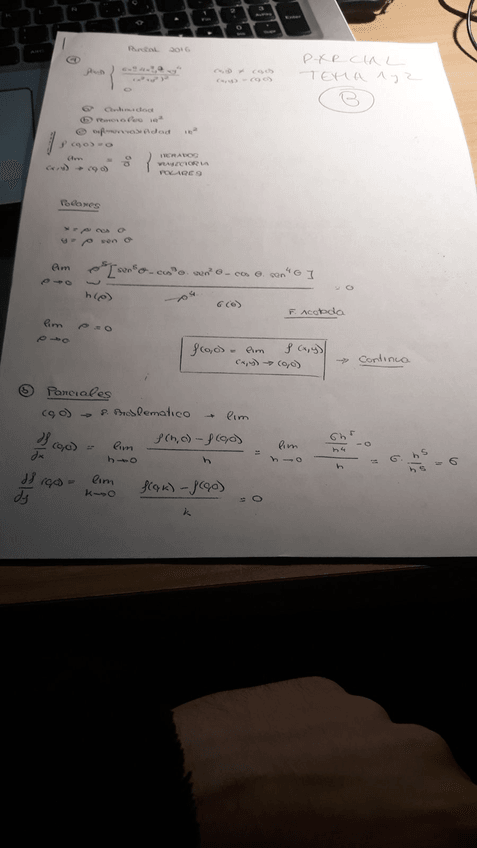 Parcial 2016
PARCIAL
TEMA 1 y 2
B
a
(x²+y²)²
0
(x,y) ≠ (0,0)
(x,y) = (0,0)
a Continuidad
b Parciales
c
f(0,0)=0
lim = 0/0
(x,y) → (0,0)
ITERADOS
TRAYECTORIA
POLARES
Polares
x = ρ cos θ
y = ρ sen θ
lim ρ⁵[ - cos³θ · sen²θ - cos θ · sen⁴θ ]
ρ→0 ρ⁴ = 0
h(ρ) G(θ)
F. Acotada
lim ρ = 0
ρ→0
f(0,0) = lim f(x,y) → Continua
(x,y) → (0,0)
b Parciales
(0,0) → P. Problematico → lim
df/dx (0,0) = lim h→0 (f(h,0) - f(0,0))/h = lim h→0 (6h⁵/h⁴ - 0)/h = 6 · h⁵/h⁵ = 6
df/dy (0,0) = lim k→0 (f(0,k) - f(0,0))/k = 0